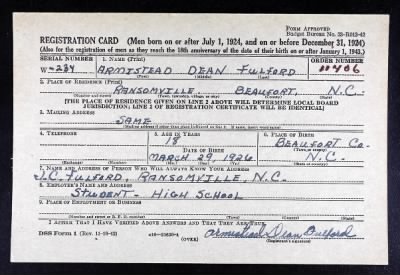 Form Approved
Budget Bureau No. 33-R012-42
REGISTRATION CARD (Men born on or after July 1, 1924, and on or before December 31, 1924)
(Also for the registration of men as they reach the 18th anniversary of the date of their birth on or after January 1, 1943.)
SERIAL NUMBER 1. NAME (Print) ORDER NUMBER
W-234 ARMISTEAD DEAN FULFORD 11406
(First) (Middle) (Last)
2. PLACE OF RESIDENCE (Print)
RANSOMVILLE, BEAUFORT, N.C.
[THE PLACE OF RESIDENCE GIVEN ON LINE 2 ABOVE WILL DETERMINE LOCAL BOARD
JURISDICTION; LINE 2 OF REGISTRATION CERTIFICATE WILL BE IDENTICAL]
3. MAILING ADDRESS
SAME
4. TELEPHONE 5. AGE IN YEARS 6. PLACE OF BIRTH
18 BEAUFORT CO.
DATE OF BIRTH
MARCH 29, 1926 N.C.
(Exchange) (Number) (Mo.) (Day) (Yr.) (State or country)
7. NAME AND ADDRESS OF PERSON WHO WILL ALWAYS KNOW YOUR ADDRESS
J.C. FULFORD, RANSOMVILLE, N.C.
8. EMPLOYER'S NAME AND ADDRESS
STUDENT - HIGH SCHOOL
9. PLACE OF EMPLOYMENT OR BUSINESS
(Number and street or R. F. D. number) (Town) (County) (State)
I AFFIRM THAT I HAVE VERIFIED ABOVE ANSWERS AND THAT THEY ARE TRUE.
DSS Form 1 (Rev. 11-16-42) (OVER) Armistead Dean Fulford
(Registrant's signature)